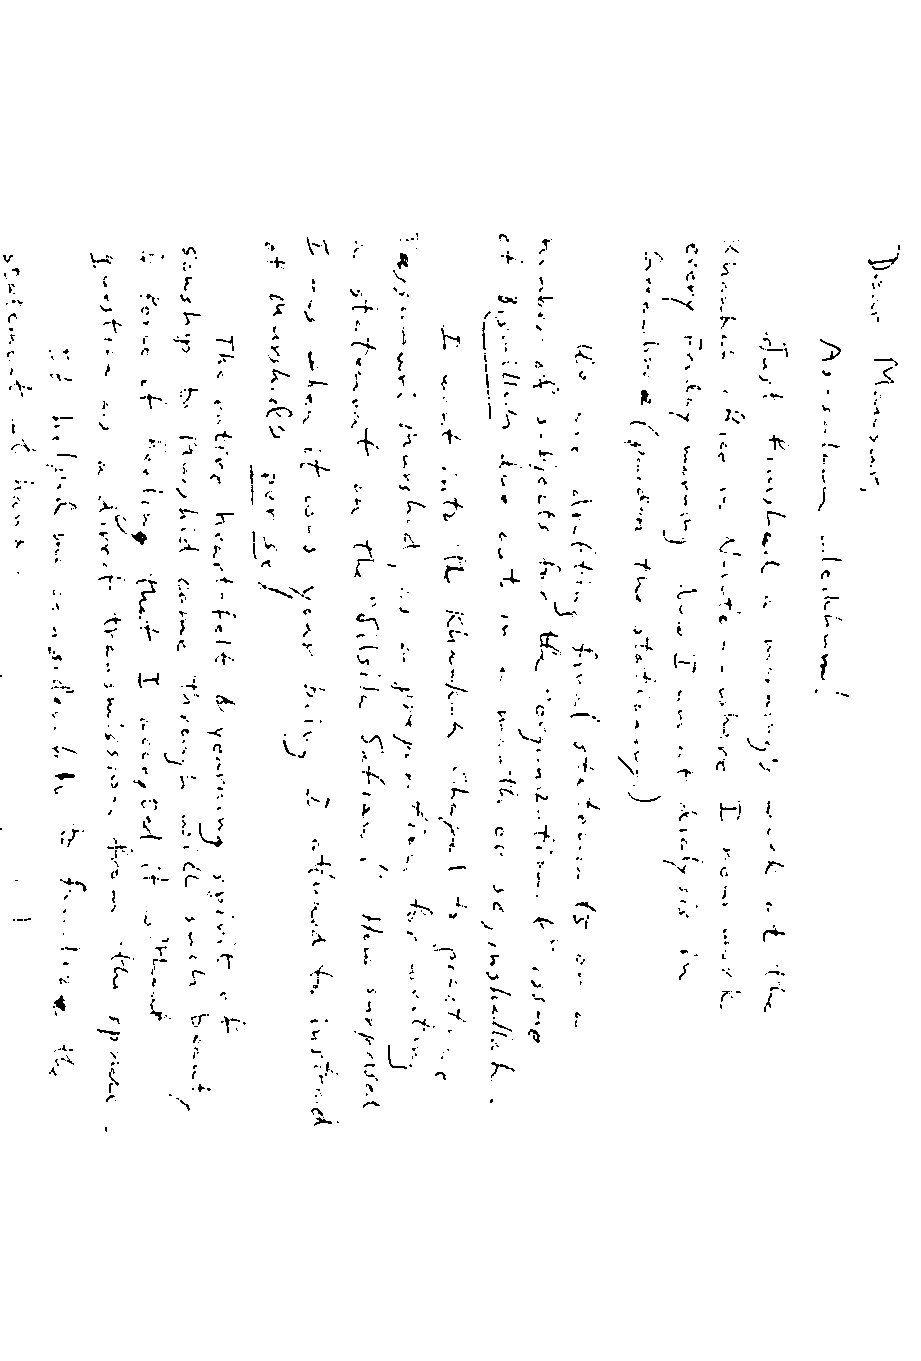 Dear Mansur,
As-salaam aleikhum!
Just finished a morning's work at the
Khankah office in Novato -- where I now work
every Friday morning. Now I am at dialysis in
Greenbrae (pardon the stationary.)
We are drafting final statements on a
number of subjects for the "organizational" issue
of Bismillah due out in a month or so, inshallah.
I went into the Khankah Chapel to practice
Tassawuri Murshid, as a preparation for writing
a statement on the "Silsila Sufian." How surprised
I was when it was your being I attuned to instead
of Murshid's per se!
The entire heart-felt & yearning spirit of
sonship to Murshid came through with such beauty
& force of feeling that I accepted it without
question as a direct transmission from the sphere.
It helped me considerably to finalize the
statement at hand.